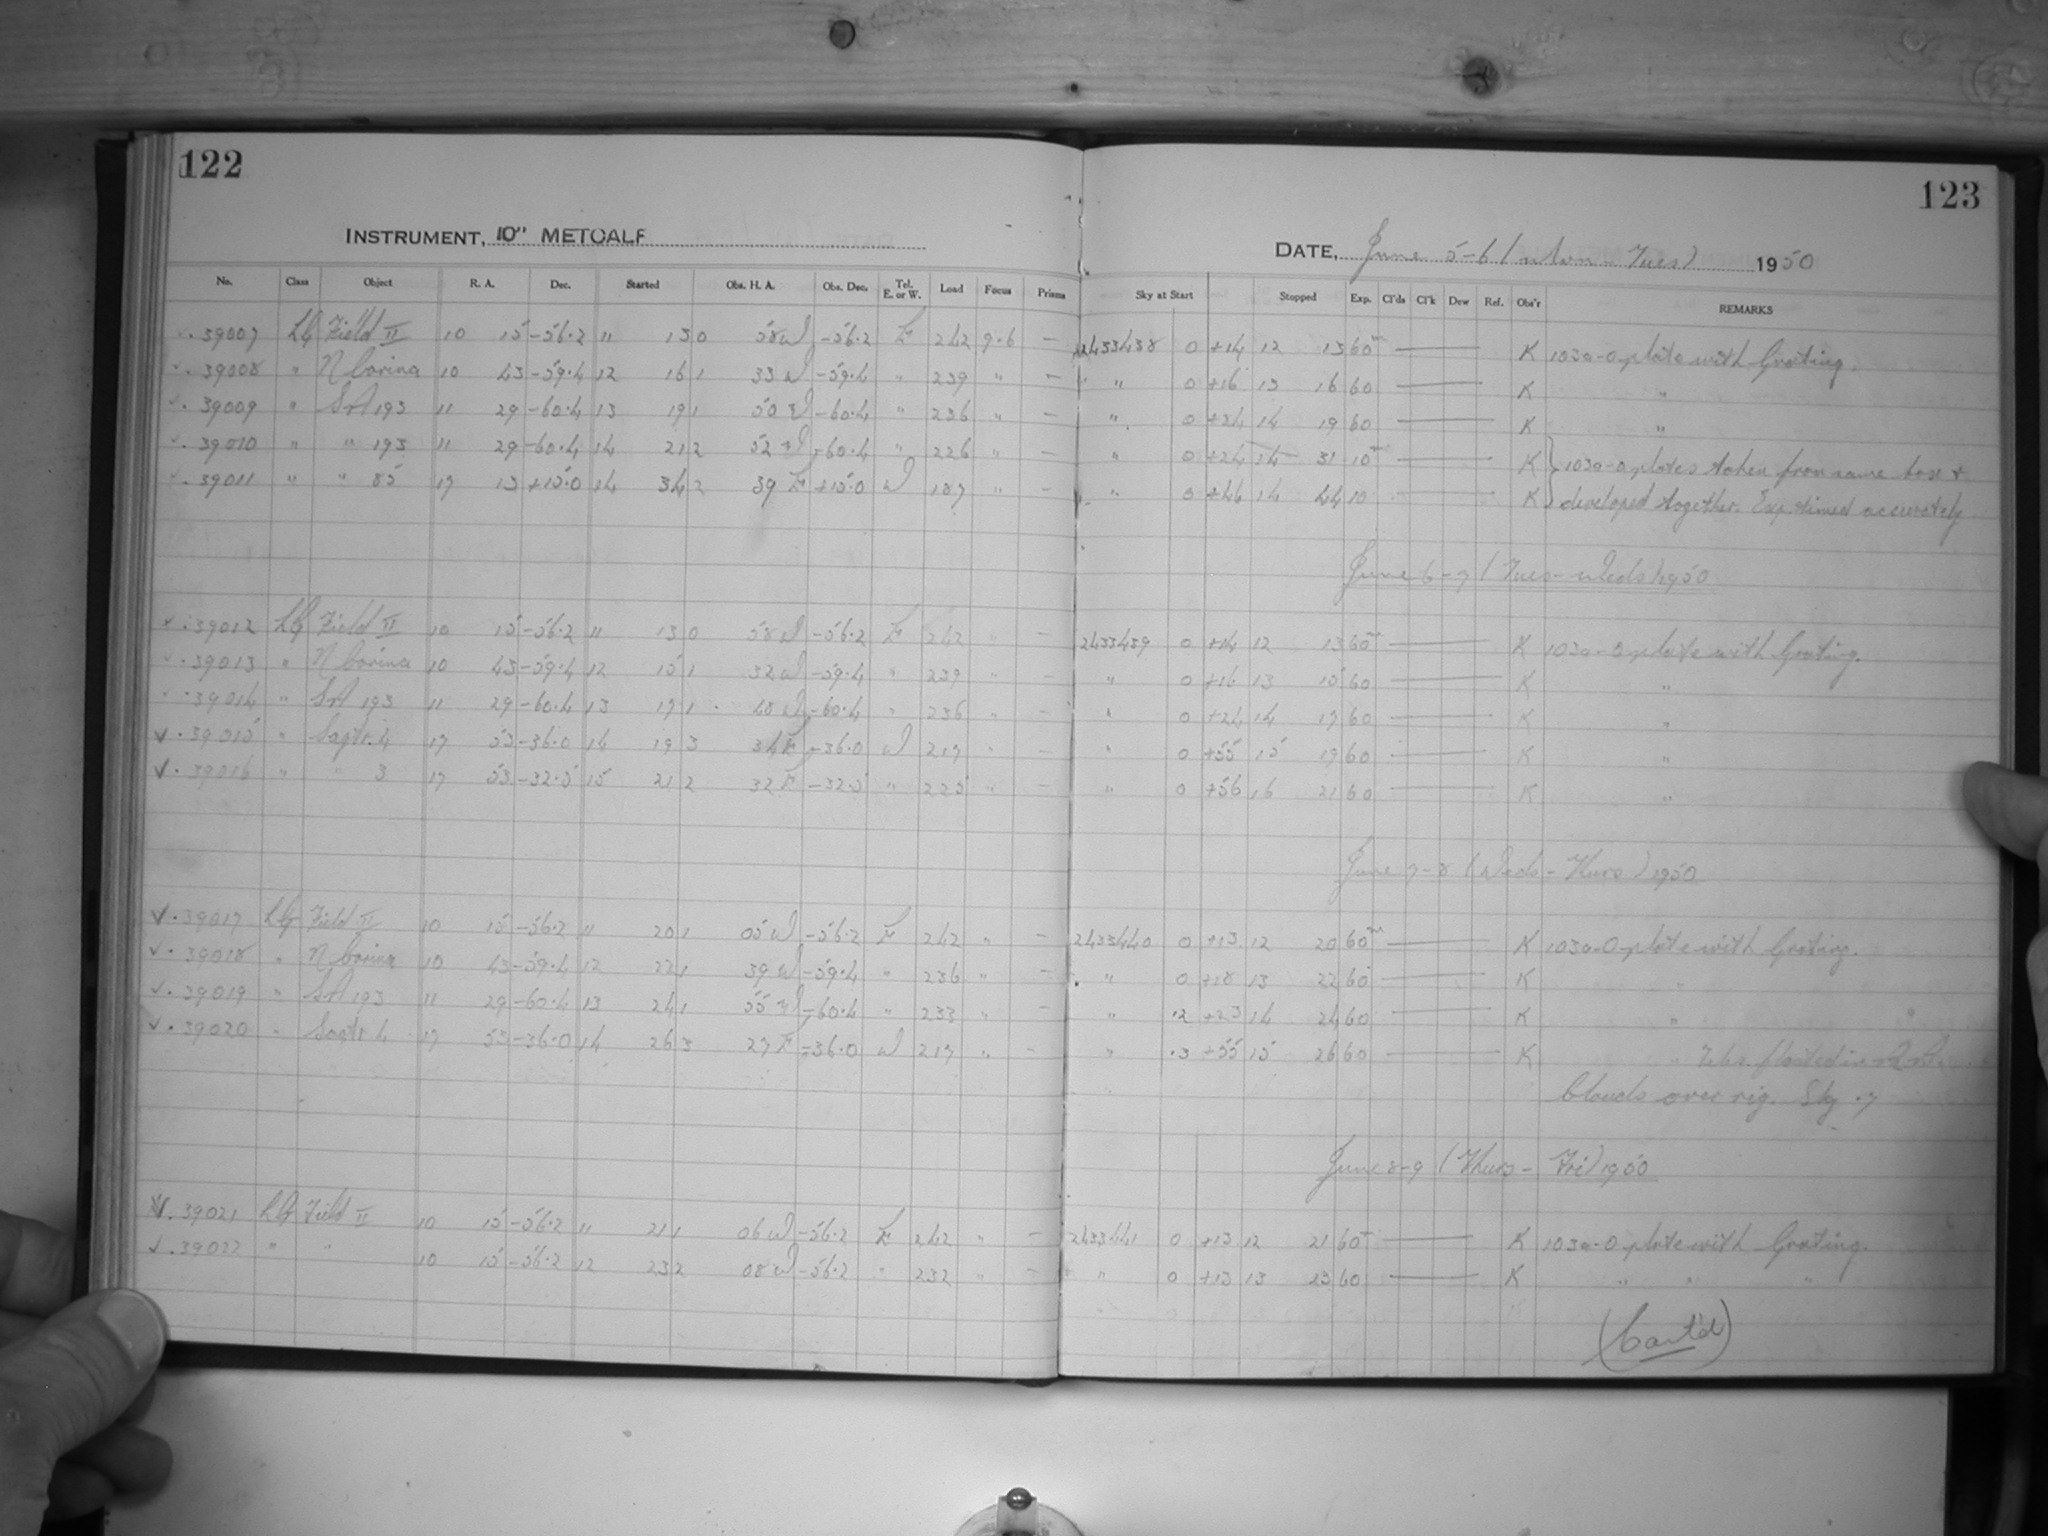 122
123
INSTRUMENT, 10" METCALF
DATE, June 5-6 (Mon - Tues) 1950
No. Class Object R. A. Dec. Started Obs. H. A. Obs. Dec. Tel. E. or W. Load Focus Prisms Sky at Start Stopped Exp. Cl'ds Cl'k Dew Ref. Obs'r REMARKS
39007 LG Field II 10 15 -56.2 11 13 0 58 W -56.2 E 242 9.6 — 2433438 0 +14 12 13 60m K 103a-O plate with Grating.
39008 " N Carina 10 43 -59.4 12 16 1 33 W -59.4 " 239 " — " 0 +16 13 16 60 K "
39009 " SA 193 11 29 -60.4 13 19 1 50 W -60.4 " 236 " — " 0 +24 14 19 60 K "
39010 " " 193 11 29 -60.4 14 21 2 52 W -60.4 " 226 " — " 0 +24 14 31 10m K } 103a-O plates taken from same box +
39011 " " 85 17 13 +15.0 14 34 2 39 E +15.0 W 187 " — " 0 +46 14 44 10 K } developed together. Exp. timed accurately
June 6-7 (Tues - Weds) 1950
39012 LG Field II 10 15 -56.2 11 13 0 58 W -56.2 E 242 " — 2433439 0 +14 12 13 60m K 103a-O plate with Grating.
39013 " N Carina 10 43 -59.4 12 15 1 32 W -59.4 " 239 " — " 0 +16 13 15 60 K "
39014 " SA 193 11 29 -60.4 13 17 1 48 W -60.4 " 236 " — " 0 +24 14 17 60 K "
39015 " Sagtr. 4 17 53 -36.0 14 19 3 34 E -36.0 W 217 " — " 0 +55 15 19 60 K "
39016 " " 3 17 53 -32.5 15 21 2 32 E -32.5 " 225 " — " 0 +56 16 21 60 K "
June 7-8 (Weds - Thurs) 1950
39017 LG Field II 10 15 -56.2 11 20 1 05 W -56.2 E 242 " — 2433440 0 +13 12 20 60m K 103a-O plate with Grating.
39018 " N Carina 10 43 -59.4 12 22 1 39 W -59.4 " 236 " — " 0 +18 13 22 60 K "
39019 " SA 193 11 29 -60.4 13 24 1 55 W -60.4 " 233 " — " .2 +23 14 24 60 K " "
39020 " Sagtr. 4 17 53 -36.0 14 26 3 27 E -36.0 W 217 " — " .3 +55 15 26 60 K " Tel.
Clouds over rig. Sky .7
June 8-9 (Thurs - Fri) 1950
39021 LG Field II 10 15 -56.2 11 21 1 06 W -56.2 E 242 " — 2433441 0 +13 12 21 60m K 103a-O plate with Grating.
39022 " " 10 15 -56.2 12 23 2 08 W -56.2 " 232 " — " 0 +13 13 23 60 K " " "
(Cont'd)